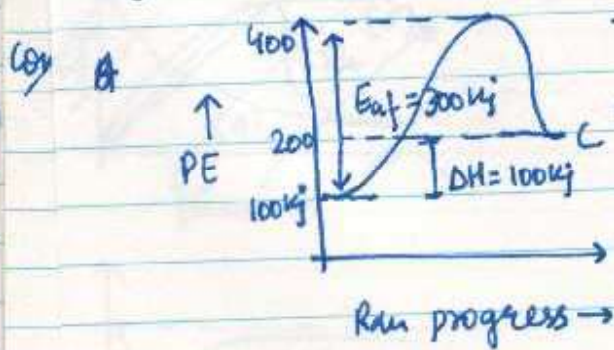 400
Eaf = 300 kj
↑
PE
200
C
ΔH = 100 kj
100 kj
Rxn progress →